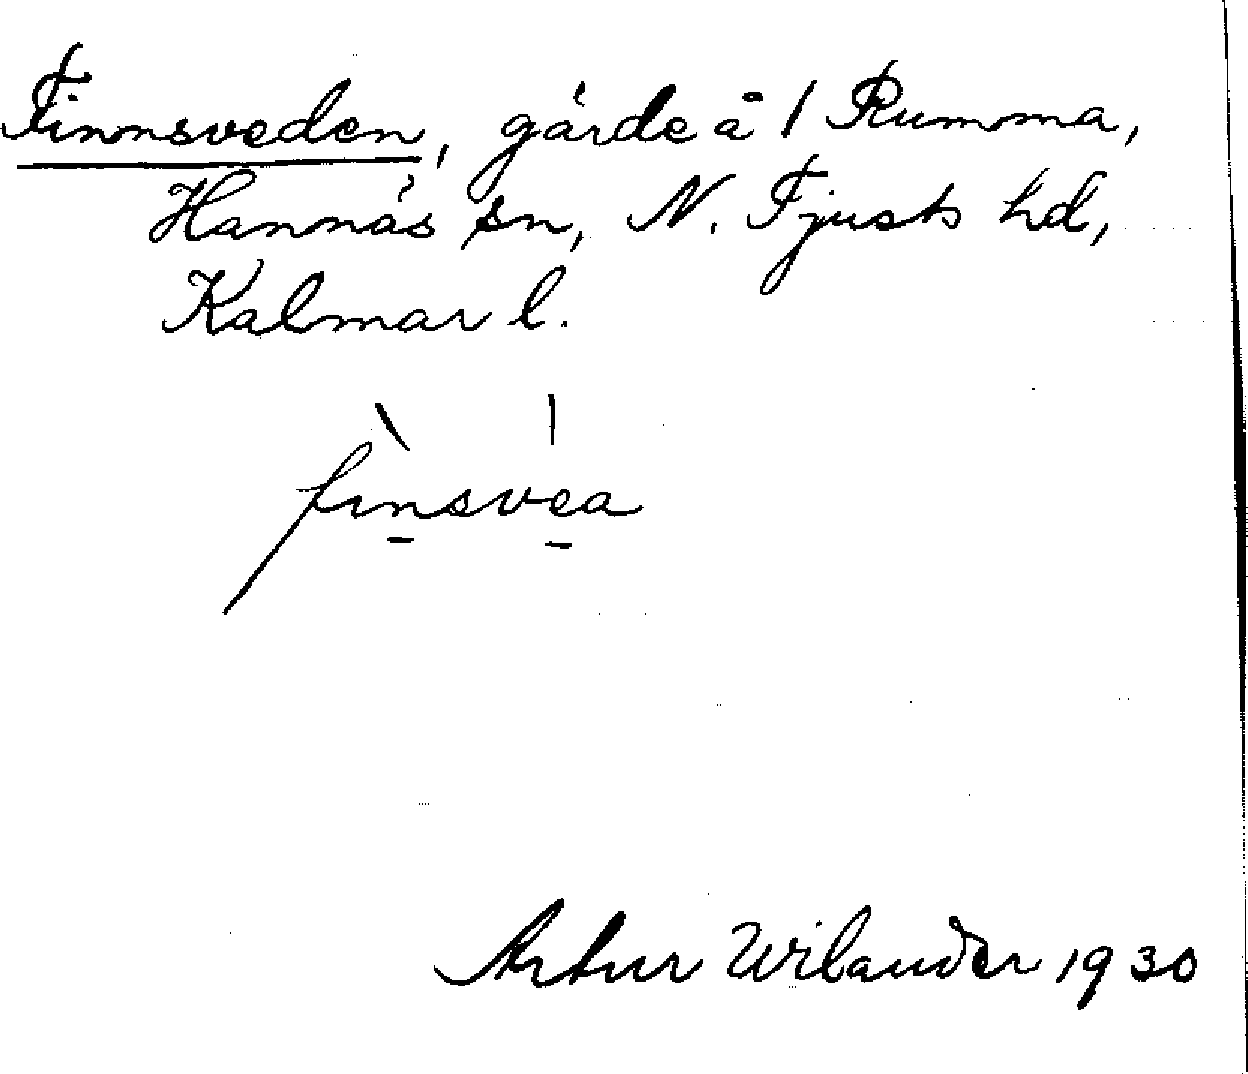 Finnsveden, gärde å 1 Rumma,
Hannäs sn, N. Tjusts hd,
Kalmar l.
fìnsvéa
Artur Wilander 1930